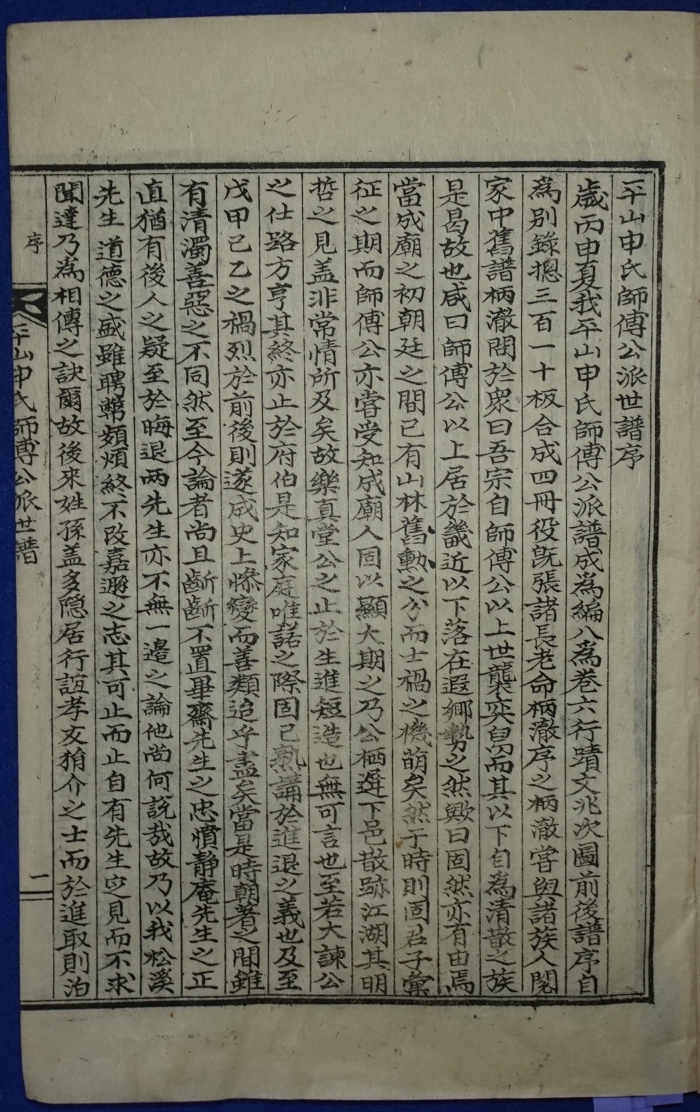 平山申氏師傅公派世譜序
歲丙申夏我平山申氏師傅公派譜成爲編八爲卷六行蹟文兆次圖前後譜序自
爲別錄摠三百一十板合成四冊役旣張諸長老命柄澈序之柄澈嘗與諸族人閱
家中舊譜柄澈問於衆曰吾宗自師傅公以上世襲奕舃而其以下自爲清散之族
是曷故也咸曰師傅公以上居於畿近以下落在遐鄉勢之然歟曰固然亦有由焉
當成廟之初朝廷之間已有山林舊勳之分而士禍之機萌矣然于時則固君子彙
征之期而師傅公亦嘗受知成廟人固以顯大期之乃公栖遑下邑散跡江湖其明
哲之見盖非常情所及矣故樂真堂公之止於生進短造也無可言也至若大諫公
之仕路方亨其終亦止於府伯是知家庭唯諾之際固已熟講於進退之義也及至
戊甲己乙之禍烈於前後則遂成史上慘變而善類迨乎盡矣當是時朝著之間雖
有清濁善惡之不同然至今論者尚且齗齗不置畢齋先生之忠憤靜庵先生之正
直猶有後人之疑至於晦退兩先生亦不無一邉之論他尚何說哉故乃以我松溪
先生道德之盛雖聘幣頻煩終不改嘉遯之志其可止而止自有先生定見而不求
聞達乃爲相傳之訣爾故後來姓孫盖多隱居行誼孝友狷介之士而於進取則泊
序
平山申氏師傅公派世譜
二